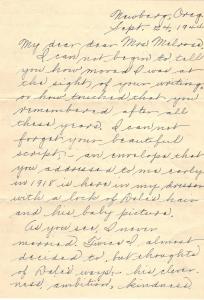 Newberg, Oreg.
Sept. 24, 1944
My dear dear Mrs Melrose,
I can not begin to tell
you how moved I was at
the sight of your writing
or how touched that you
remembered after all
these years. I can not
forget your beautiful
script, - an envelope that
you addressed to me early
in 1918 is here in my dresser
with a lock of Dale's hair
and his baby picture.
As you see, I never
married. Twice I almost
decided to, but thoughts
of Dale's ways, - his clever-
ness, ambition, kindness